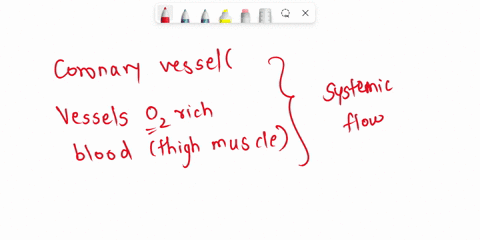 Coronary vessel(
Vessels O2 rich
blood (thigh muscle)
systemic
flow